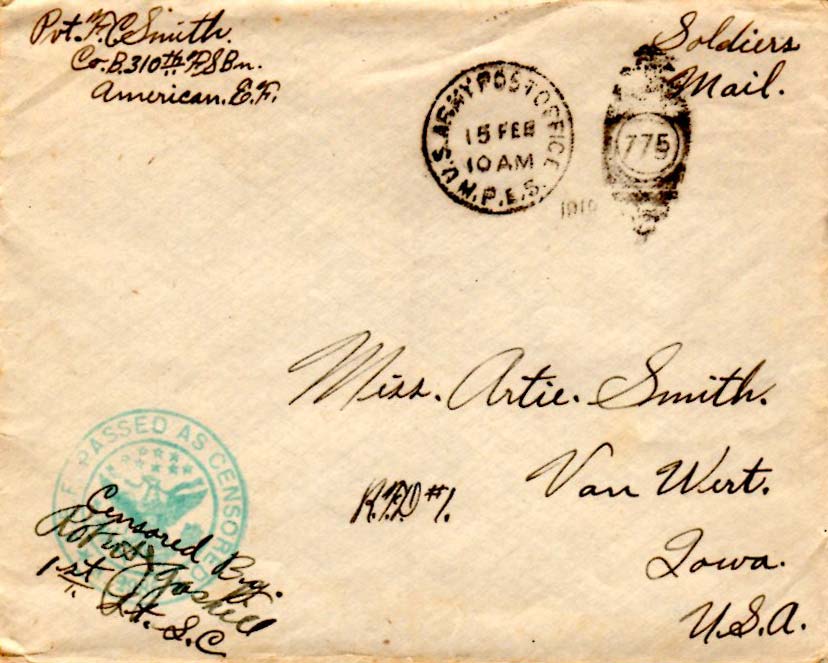 Pvt. F. C. Smith.
Co. B. 310th F. S Bn.
American. E. F.
Soldiers
Mail.
U.S. ARMY POST OFFICE
15 FEB
10 AM
M.P.E.S.
775
Miss. Artie. Smith.
R.F.D #1.
Van Wert.
Iowa.
U.S.A.
PASSED AS CENSORED
Censored By.
Gaskell
1st Lt. S.C